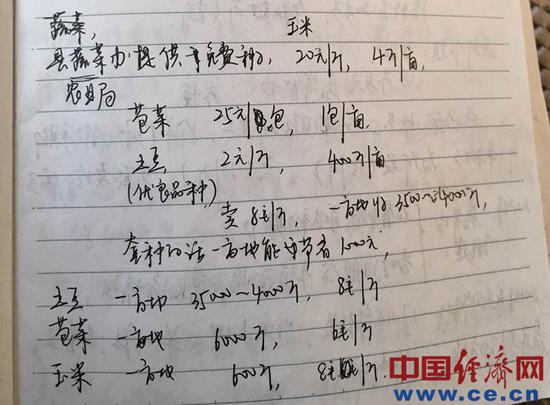 蔬菜, 玉米
县蔬菜办提供 免费种, 20元/斤, 4斤/亩,
农业局
苞菜 25元/包, 1包/亩
土豆 2元/斤, 400斤/亩
(优良品种)
卖 8毛/斤, 一亩地 3500~4000斤,
套种的话一亩地能 节省1000元,
土豆 一亩地 3500~4000斤, 8毛/斤
苞菜 一亩地 6000斤 6毛/斤
玉米 一亩地 600斤, 8毛/斤.
中国经济网
www.ce.cn